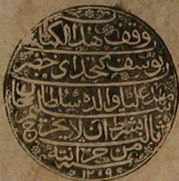 وقف هذا الكتاب
يوسف كتخداى حضرت
مهد عليا والده سلطان
بشرط ان لا يخرج
من خزانته
١٢٠٩